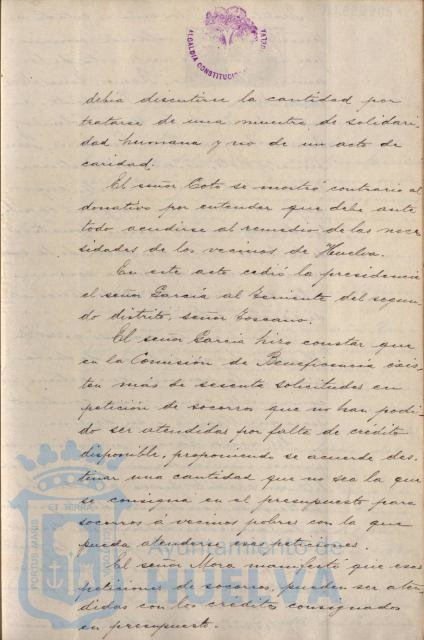 ALCALDÍA CONSTITUCIONAL
debía discutirse la cantidad por
tratarse de una muestra de solidari-
dad humana y no de un acto de
caridad.
El señor Coto se mostró contrario al
donativo por entender que debe ante
todo acudirse al remedio de las nece-
sidades de los vecinos de Huelva.
En este acto cedió la presidencia
el señor García al Teniente del segun-
do distrito, señor Toscano.
El señor García hizo constar que
en la Comisión de Beneficencia exis-
ten más de sesenta solicitudes en
petición de socorros que no han podi-
do ser atendidas por falta de crédito
disponible, proponiendo se acuerde des-
tinar una cantidad que no sea la que
se consigna en el presupuesto para
socorros á vecinos pobres con la que
pueda atenderse esas peticiones.
El señor Mora manifestó que esas
peticiones de socorros, pueden ser aten-
didas con los créditos consignados
en presupuesto.
PORTUS MARIS ET TERRAE CUSTODIA
Ayuntamiento de
HUELVA